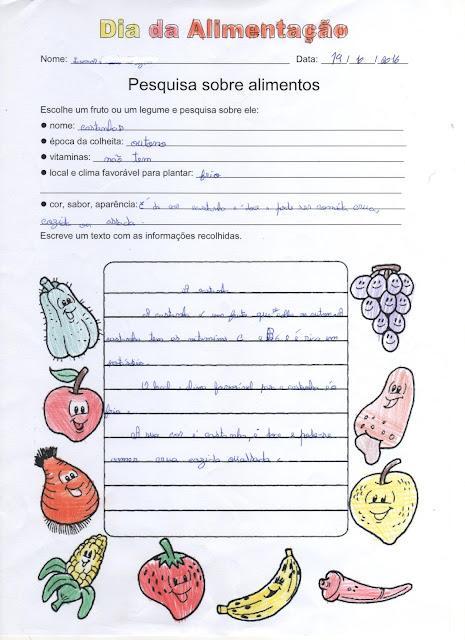 Dia da Alimentação
Nome: Data: 19 / 6 / 2016
Pesquisa sobre alimentos
Escolhe um fruto ou um legume e pesquisa sobre ele:
● nome: castanhas
● época da colheita: outono
● vitaminas: não tem
● local e clima favorável para plantar: frio
● cor, sabor, aparência: É da cor castanha e doce e pode ser comida crua,
cozida ou assada.
Escreve um texto com as informações recolhidas.
A castanha
A castanha é um fruto que se colhe no outono. A
castanha tem as vitaminas C e B6 e é rica em
potássio.
O local e clima favorável para a castanha é o
frio.
A sua cor é castanha, é doce e pode-se
comer crua cozida ou assada.